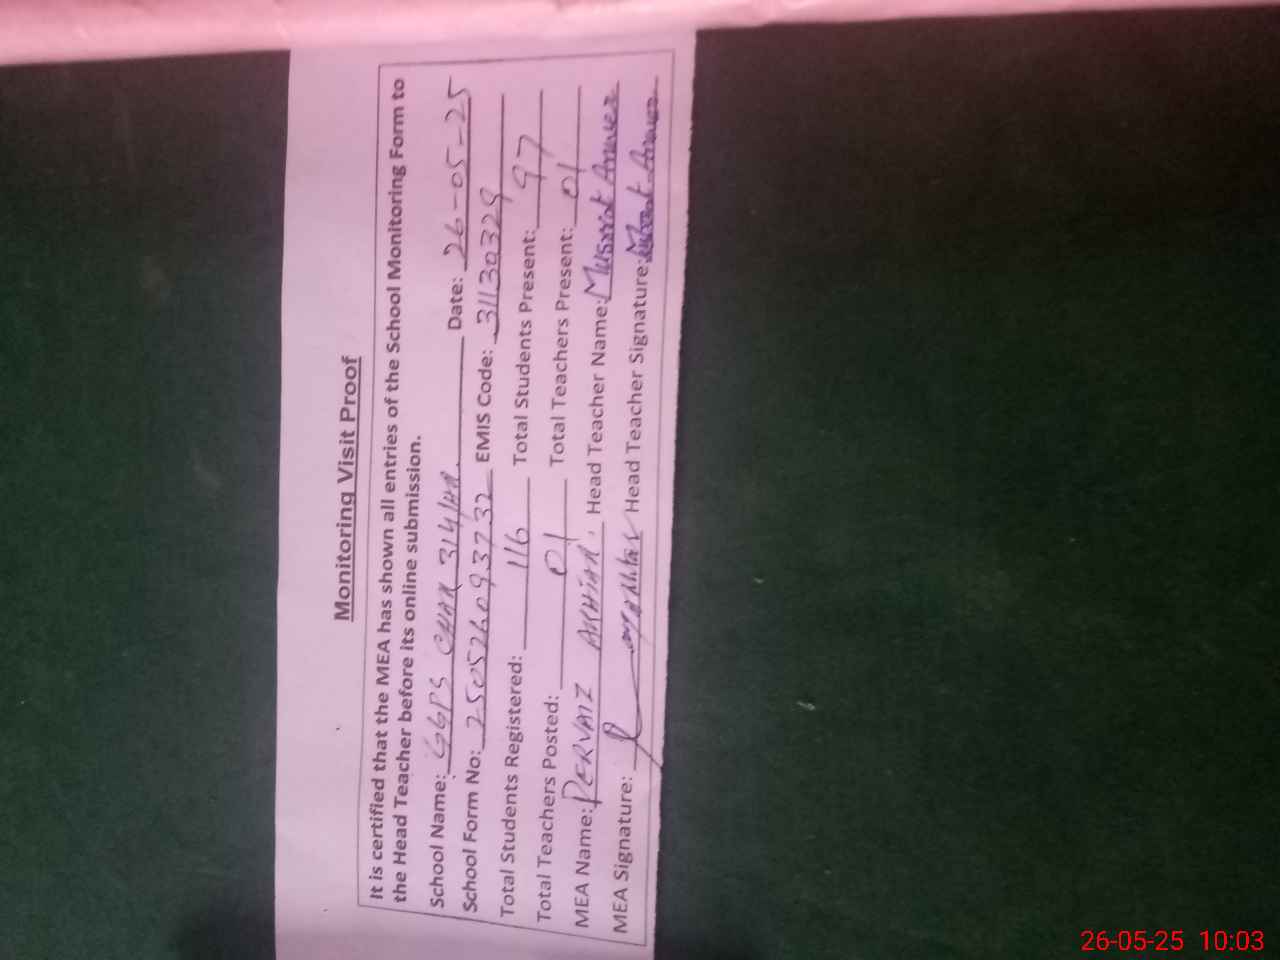 Monitoring Visit Proof
It is certified that the MEA has shown all entries of the School Monitoring Form to
the Head Teacher before its online submission.
School Name: GGPS CHAK 314/HR Date: 26-05-25
School Form No: 250526093732 EMIS Code: 31130329
Total Students Registered: 116 Total Students Present: 97
Total Teachers Posted: 01 Total Teachers Present: 01
MEA Name: PERVAIZ Head Teacher Name: Musrrat Anwer
MEA Signature: Head Teacher Signature: Anwer
26-05-25 10:03